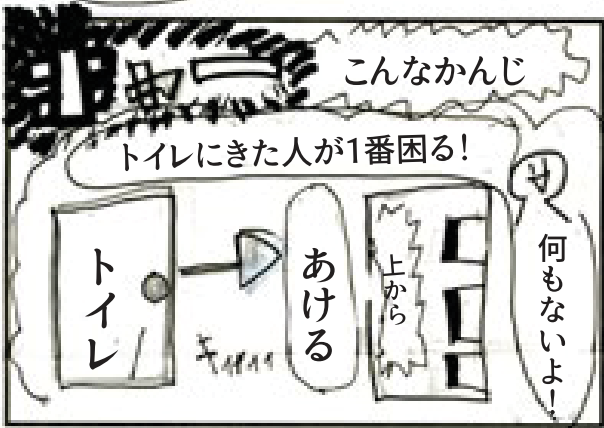 こんなかんじ
トイレにきた人が1番困る！
トイレ
あける
上から
何もないよ！